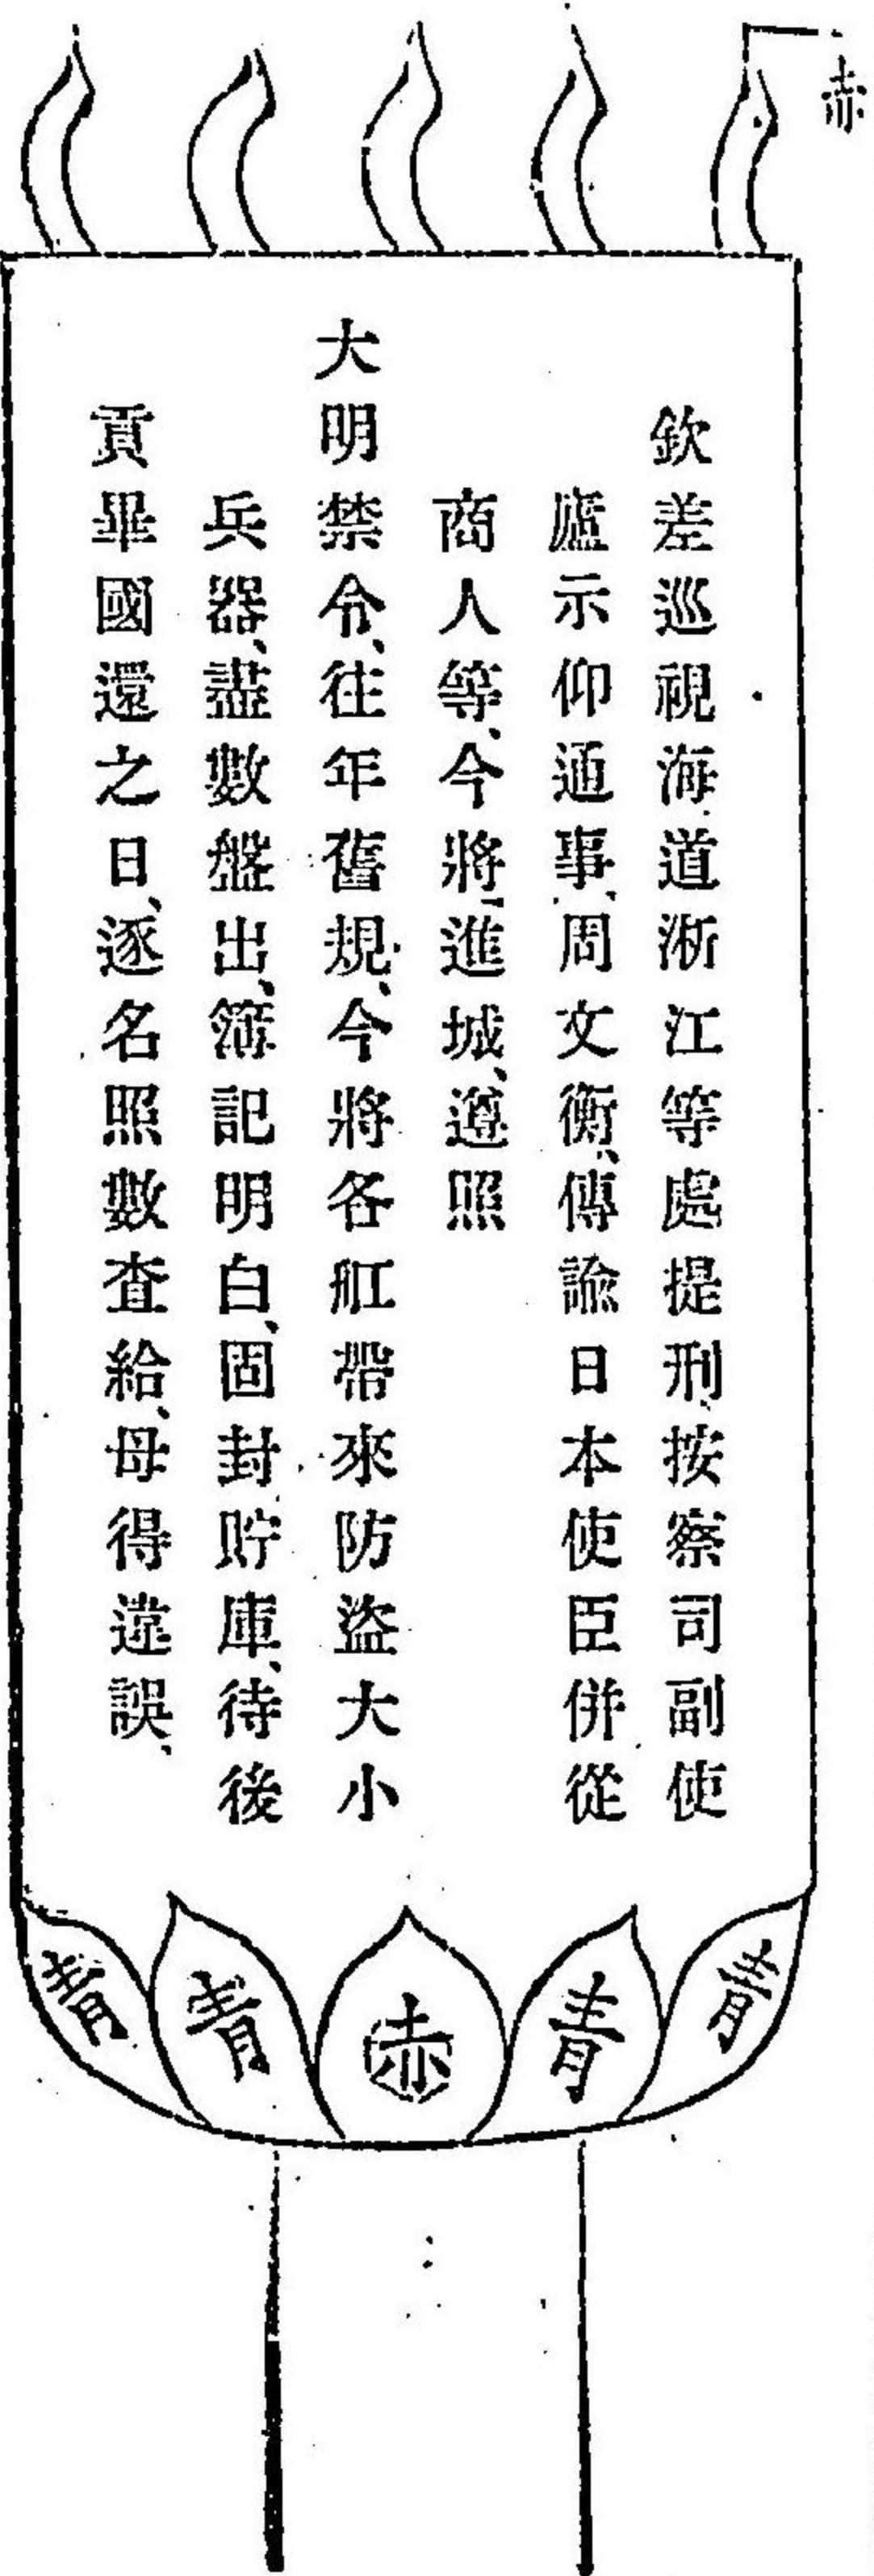 赤
欽差巡視海道浙江等處提刑按察司副使
廬示仰通事、周文衡、傳諭日本使臣併從
商人等、今將、進城、遵照
大明禁令、往年舊規、今將各舡帶來防盜大小
兵器、盡數盤出、簿記明白、固封貯庫、待後
貢畢國還之日、逐名照數査給、毋得違誤、
青
青
赤
青
青